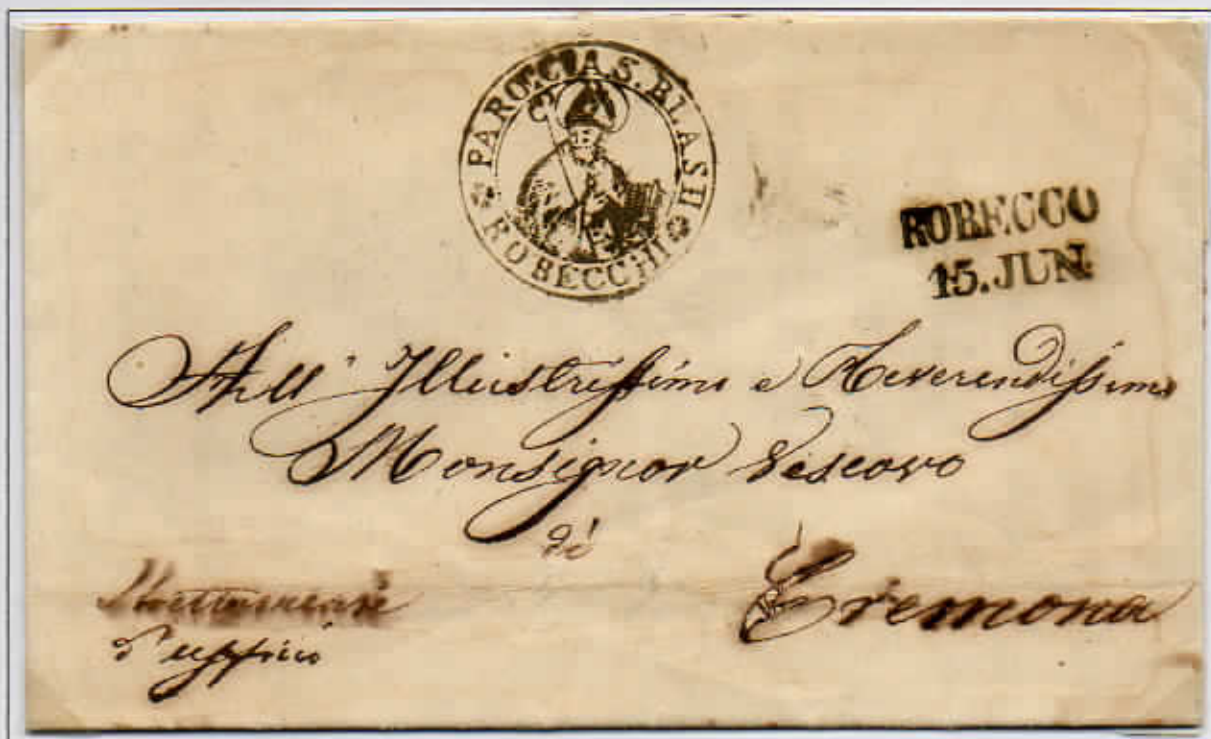 PAROCCIA S. BLASII
ROBECCHI
ROBECCO
15. JUN.
All' Illustrissimo e Reverendissimo
Monsignor Vescovo
di
Cremona
d'ufficio